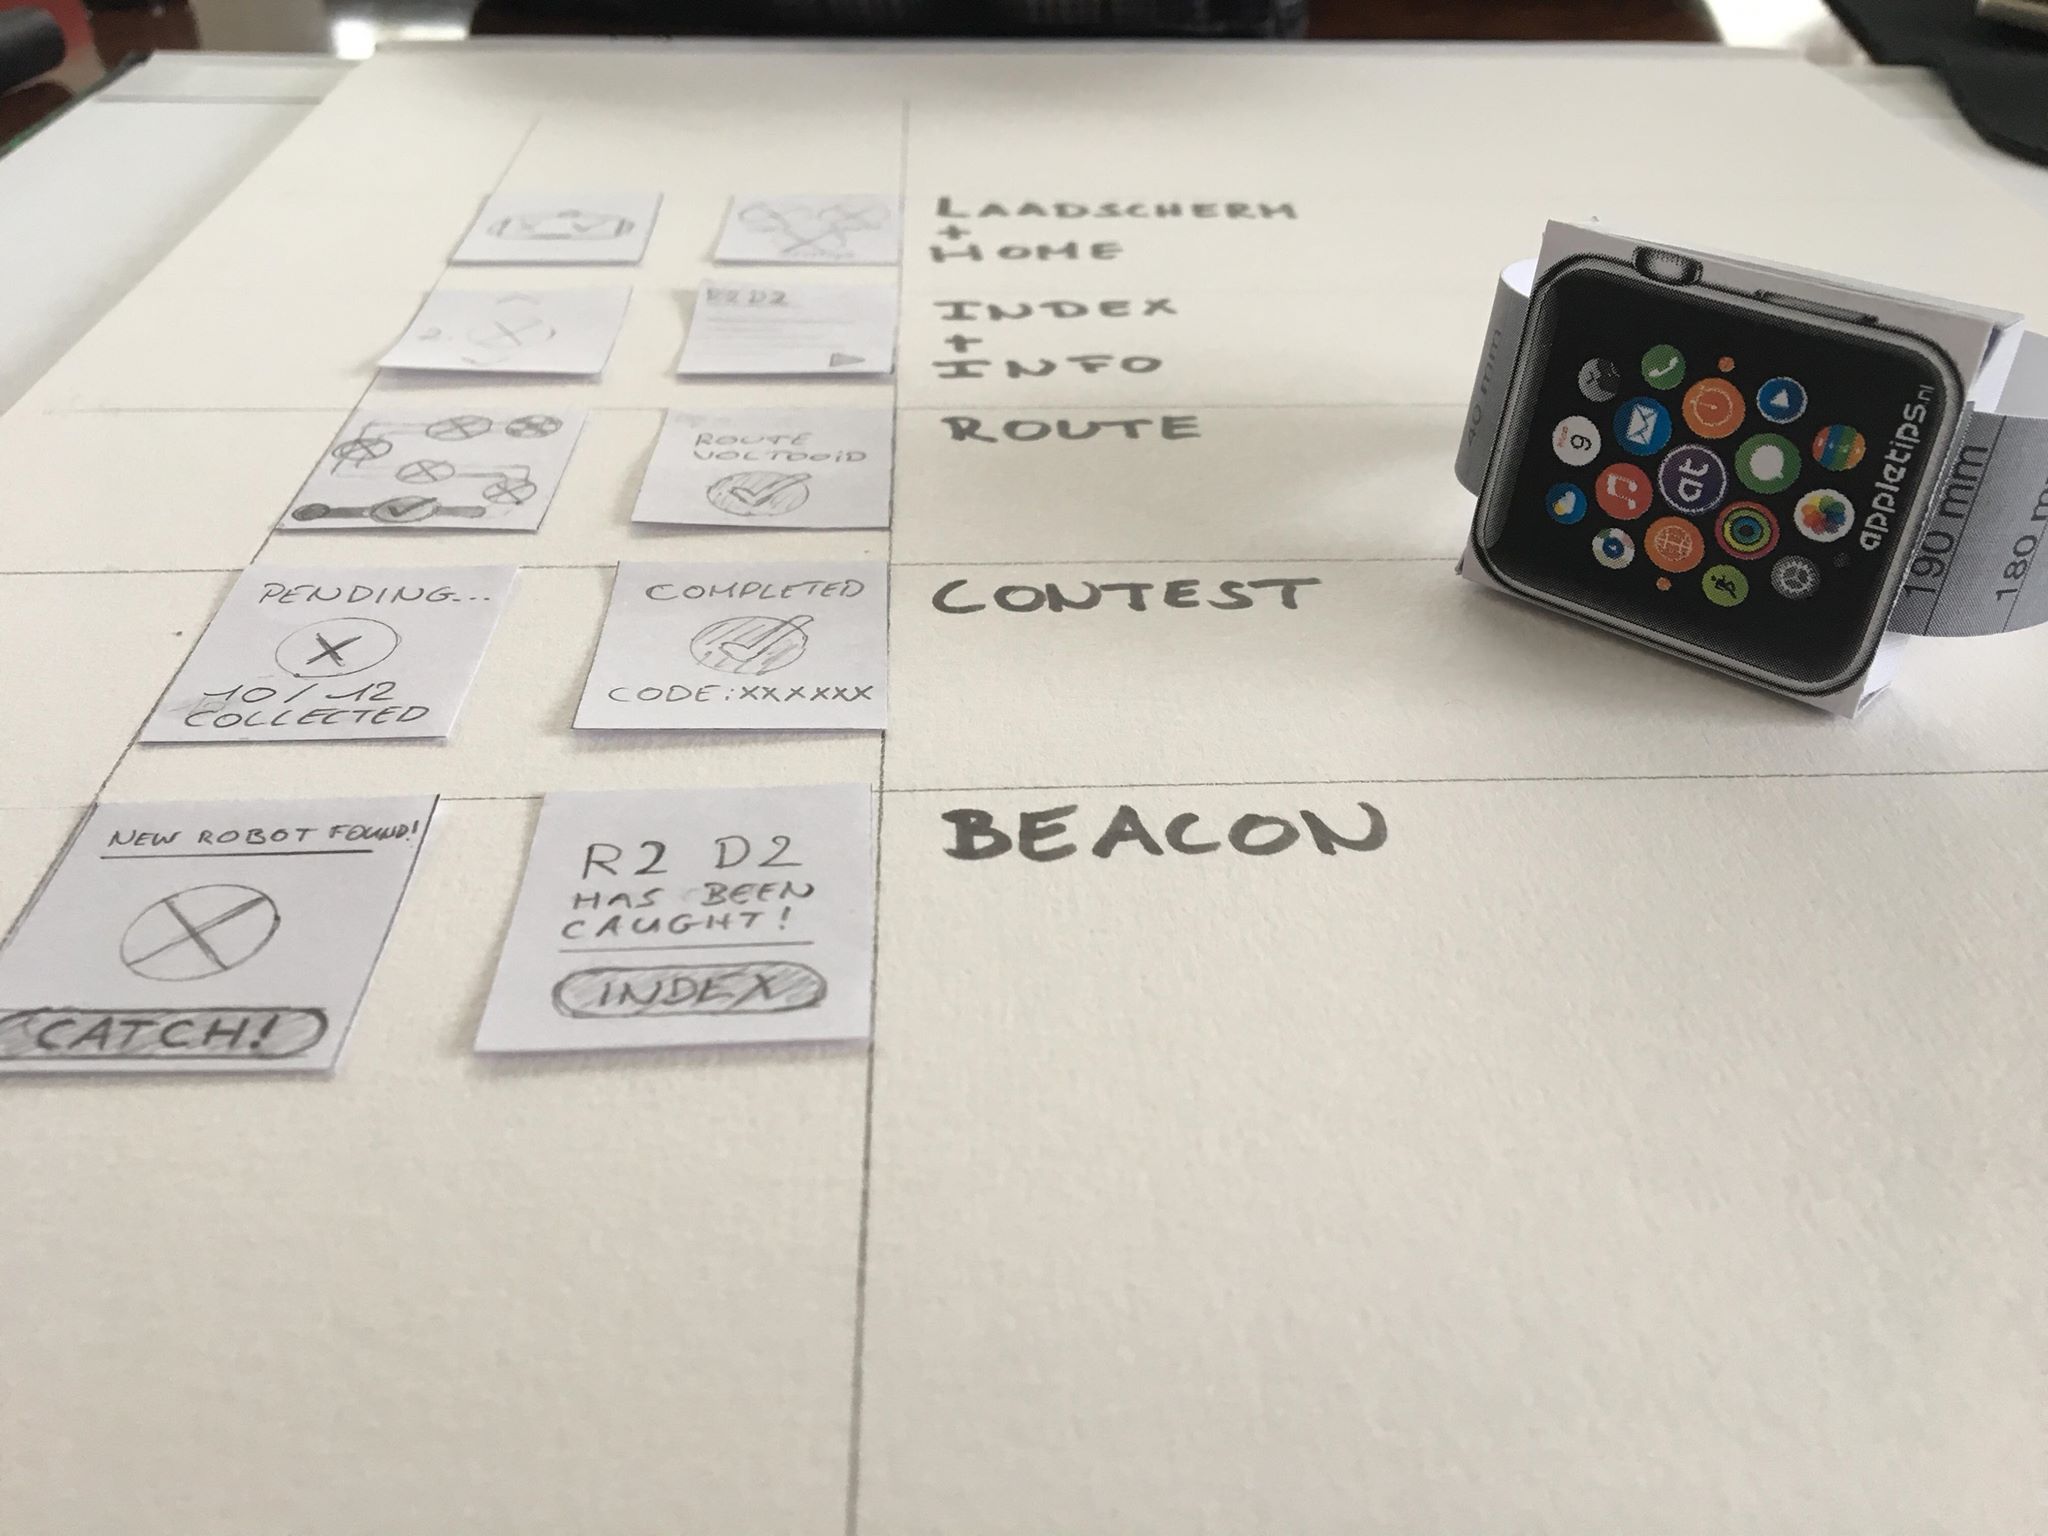 LAADSCHERM
+
HOME
R2 D2
INDEX
+
INFO
2.
ROUTE
VOLTOOID
ROUTE
PENDING...
10/12
COLLECTED
COMPLETED
CODE:XXXXXX
CONTEST
NEW ROBOT FOUND!
CATCH!
R2 D2
HAS BEEN
CAUGHT!
INDEX
BEACON
9
at
appletips.nl
190 mm
180 m